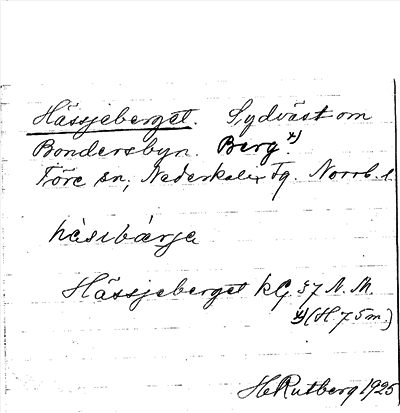 Hässjeberget. Sydväst om
Bondersbyn. Berg. x)
Töre sn, Nederkalix Tg. Norrb. l.
hàsıbærje
Hässjeberget kG 37 N. M.
x) (H. 75 m.)
H Rutberg 1925